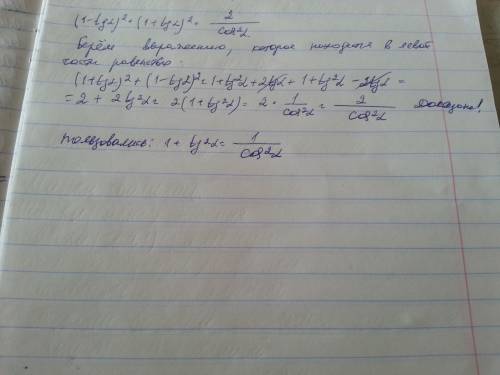 (1-tgα)² + (1+tgα)² = 2/cos²α
Берём выражению, которое находится в левой
части равенство:
(1+tgα)² + (1-tgα)² = 1+tg²α + 2tgα + 1+tg²α - 2tgα =
= 2 + 2tg²α = 2(1+tg²α) = 2 · 1/cos²α = 2/cos²α Доказано!
Пользовались: 1 + tg²α = 1/cos²α